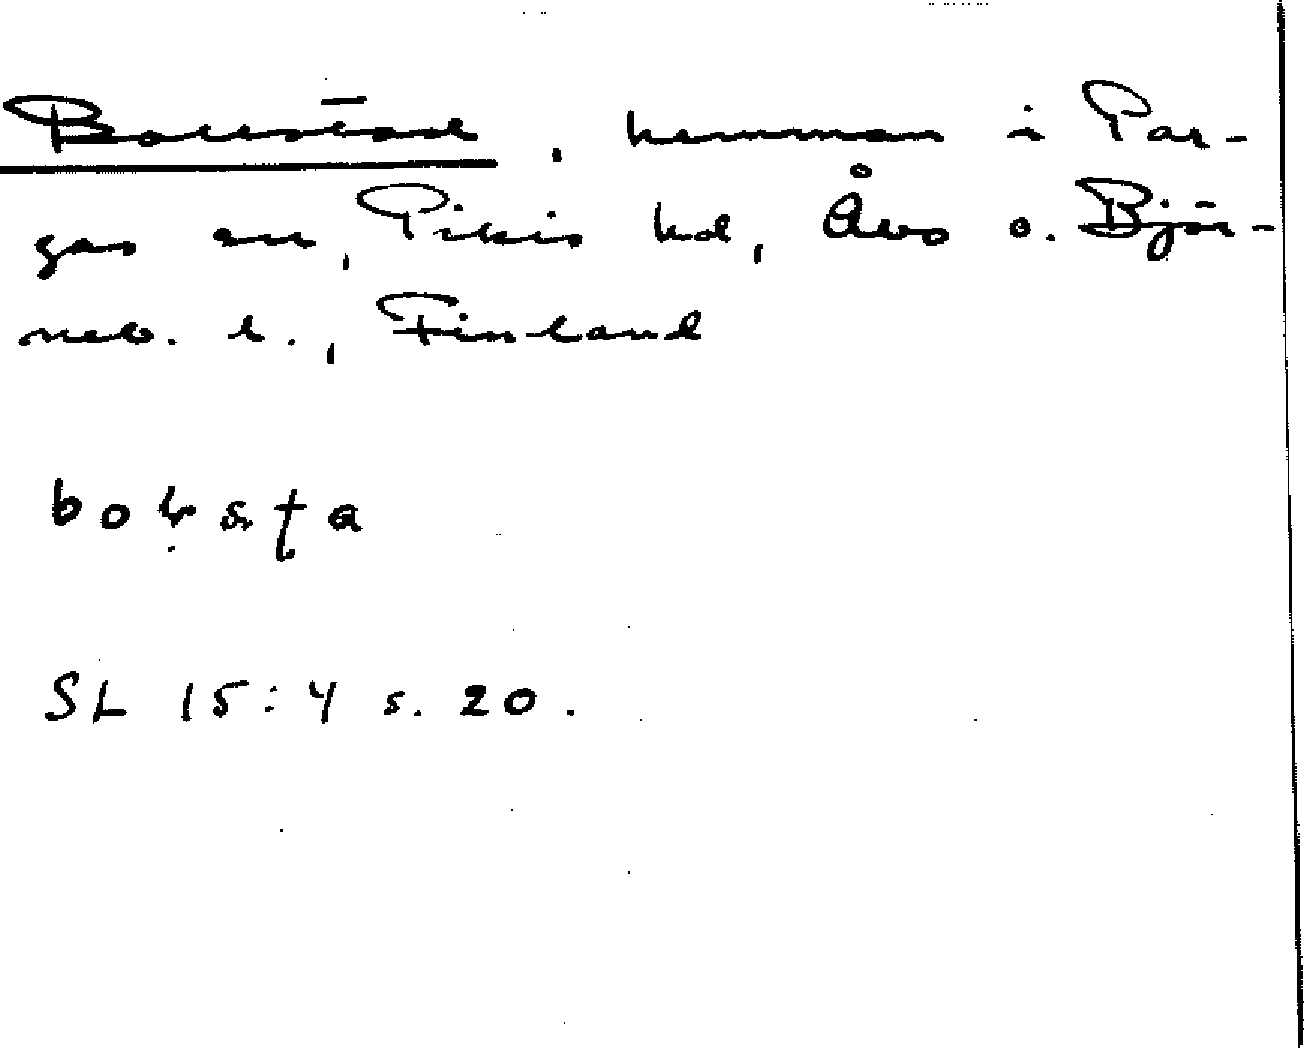 Bollstad, hemman i Par-
gas sn, Pikis hd, Åbo o. Björ-
neb. l., Finland
boḷsta
SL 15:4 s. 20.